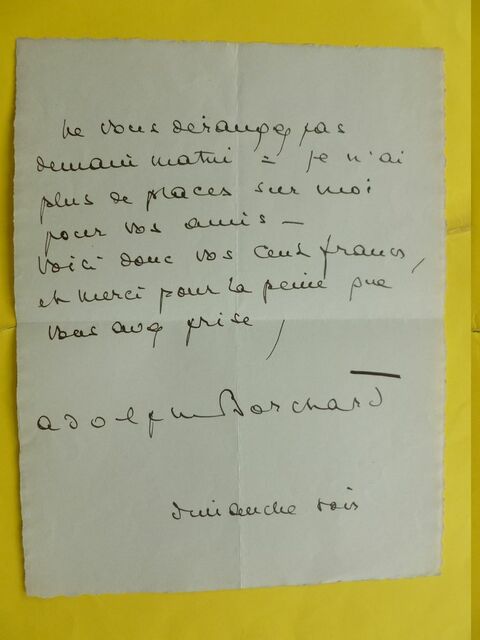 Ne vous dérangez pas
demain matin = je n'ai
plus de places sur moi
pour vos amis —
Voici donc vos cent francs,
et merci pour la peine que
vous avez prise,
Adolphe Borchard
dimanche soir